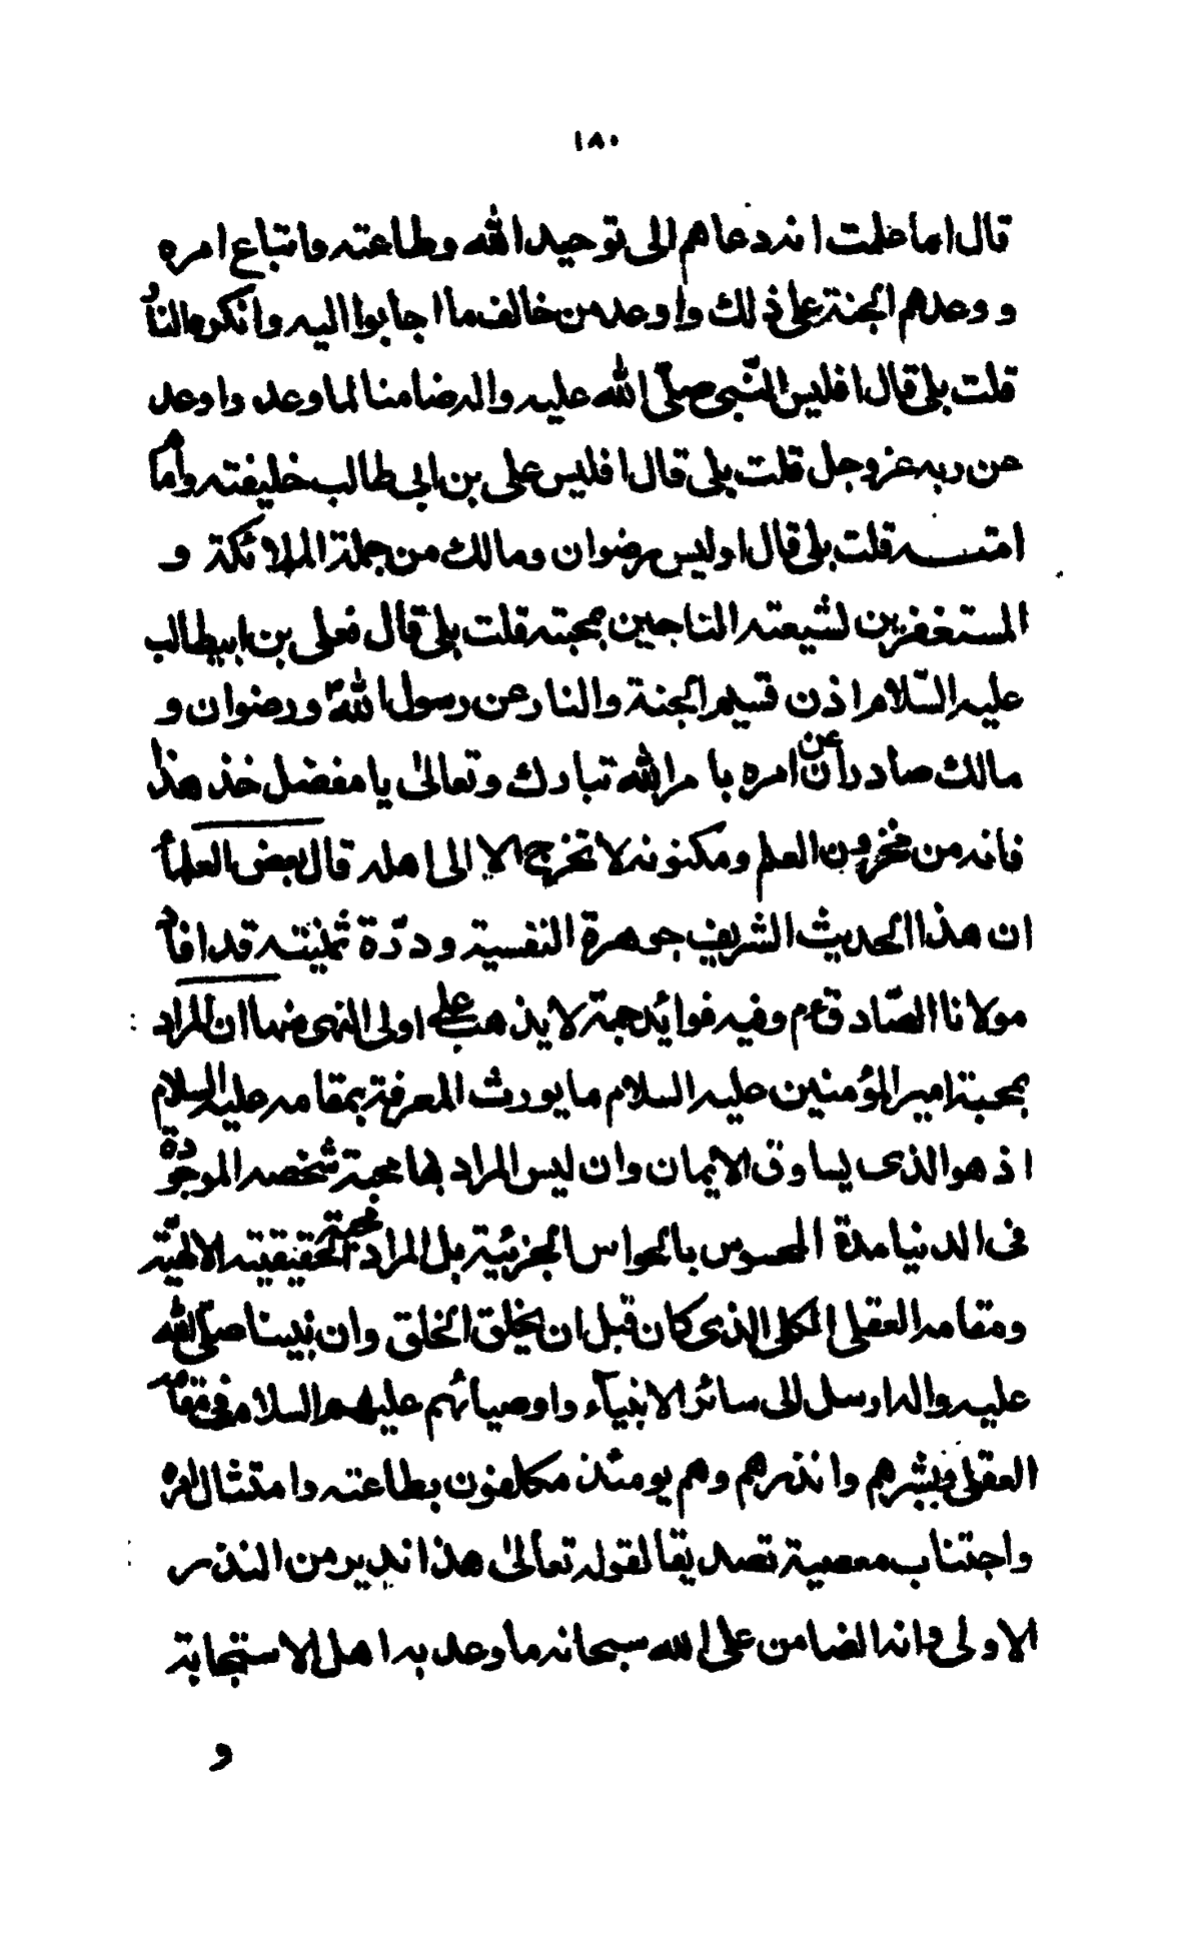 ١٨٠
قال اما علمت انه دعاهم الى توحيد الله وطاعته واتباع امره
و وعدهم الجنة على ذلك واوعد من خالف ما اجابوا اليه وانكره النار
قلت بلى قال افليس النّبى صلّى الله عليه واله ضامنا لما وعد واوعد
عن ربه عز وجل قلت بلى قال افليس على بن ابى طالب خليفته وامام
امته قلت بلى قال اوليس رضوان ومالك من جملة الملائكة و
المستغفرين لشيعته الناجين بمحبته قلت بلى قال فعلى بن ابيطالب
عليه السّلام اذن قسيم الجنة والنار عن رسول الله ص ورضوان و
مالك صادران عن امره بامر الله تبارك وتعالىٰ يا مفضل خذ هذا
فانه من مخزون العلم ومكنونه لا تخرج الا الى اهله قال بعض العلماء
ان هذا الحديث الشريف جوهرة النفسية ودرّة ثمنيته قد افاد
مولانا الصّادق ع م وفيه فوائد جمة لا يذهب على اولى النهى منها ان المراد
بمحبة امير المؤمنين عليه السلام ما يورث المعرفة بمقامه عليه السلام
اذ هو الذى يساوق الايمان وان ليس المراد بها محبة شخصه الموجودة
فى الدنيا مدة المحسوس بالحواس الجزئية بل المراد محبة الحقيقيته الالهيّة
ومقامه العقلى الكلى الذى كان قبل ان يخلق الخلق وان نبينا صلّى الله
عليه واله ارسل الى سائر الانبيآء واوصيائهم عليهم السلام فى مقامه
العقلى وبشرهم وانذرهم وهم يومئذ مكلفون بطاعته وامتثال امره
واجتناب معصية تصديقا لقوله تعالىٰ هذا نذير من النذر
الاولى وانه الضامن على الله سبحانه ما وعد به اهل الاستجابة
و